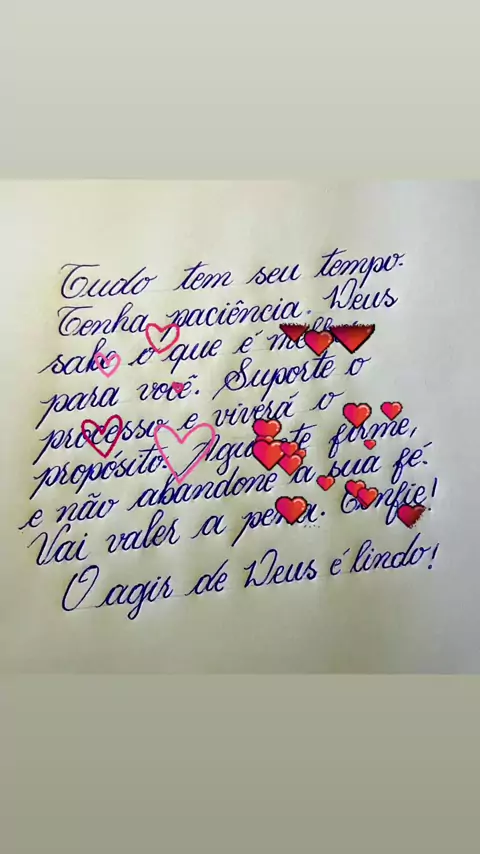 Tudo tem seu tempo.
Tenha paciência. Deus
sabe o que é
para você. Suporte o
processo e viverá o
propósito. Aguente firme,
e não abandone a sua fé.
Vai valer a pena. Confie!
O agir de Deus é lindo!